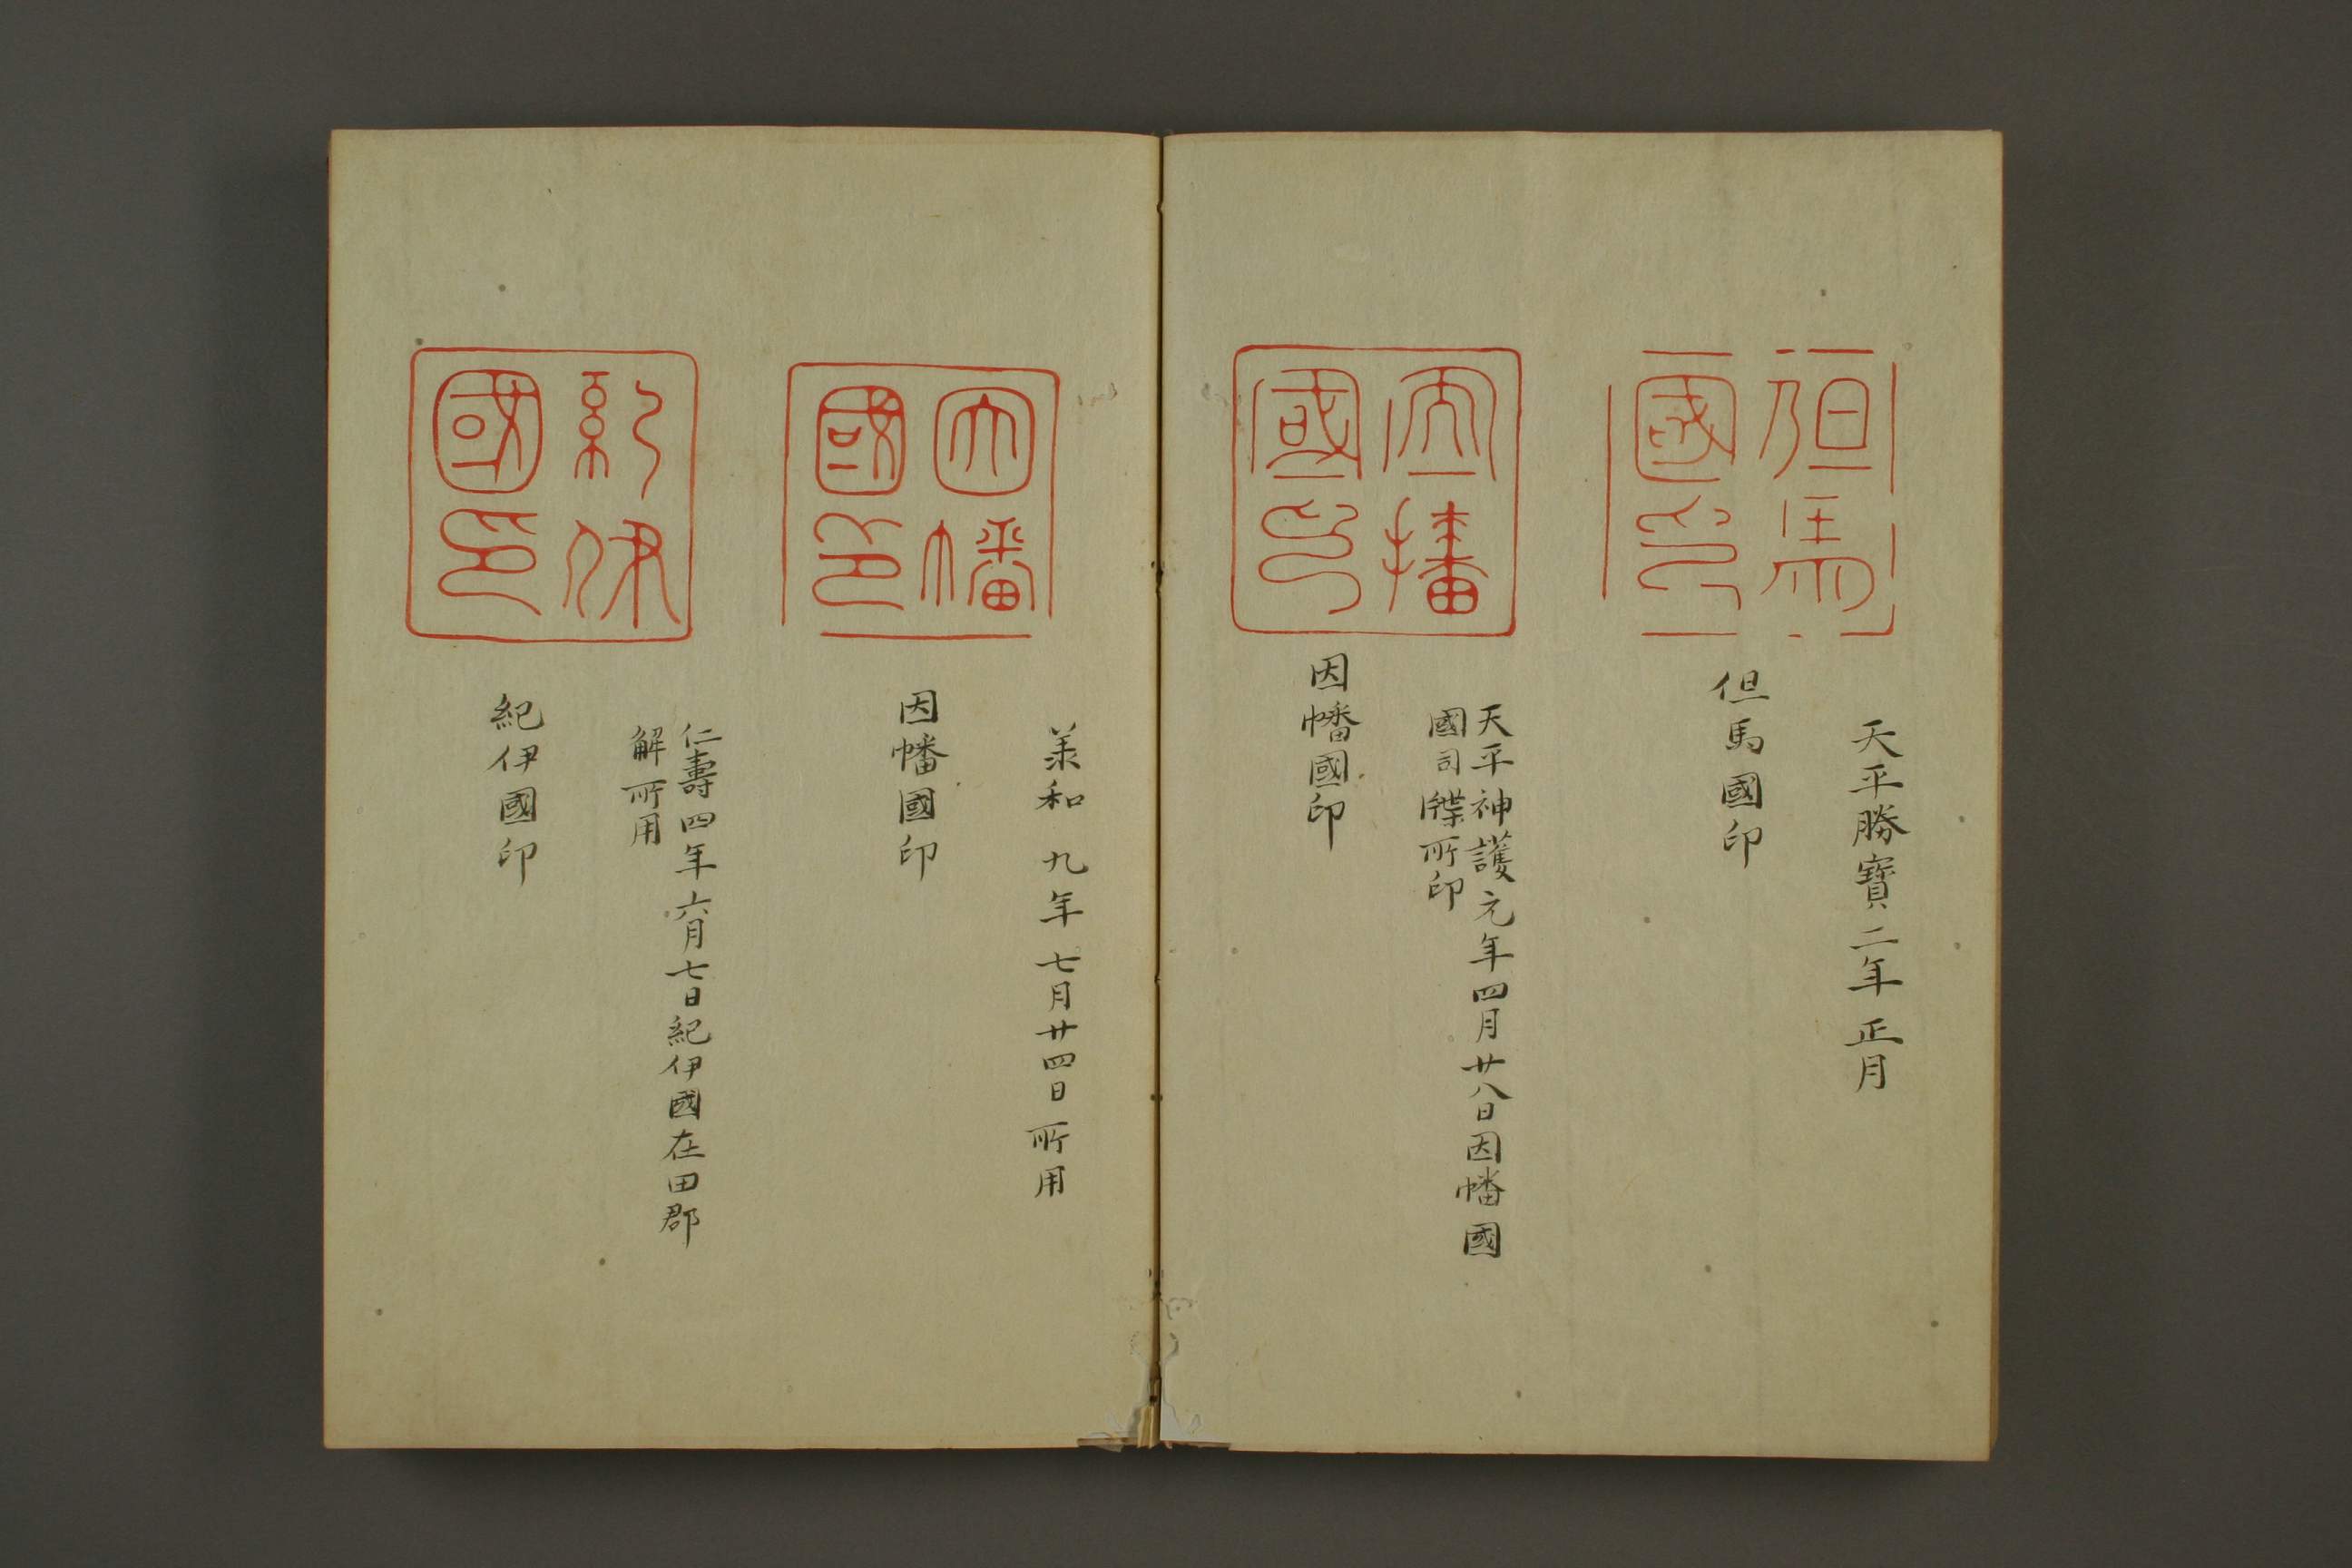 但馬
國印
天平勝寶二年正月
但馬國印
因播
國印
天平神護元年四月廿八日因幡國
國司牒所印
因幡國印
因幡
國印
承和九年七月廿四日所用
因幡國印
紀伊
國印
仁壽四年六月七日紀伊國在田郡
解所用
紀伊國印